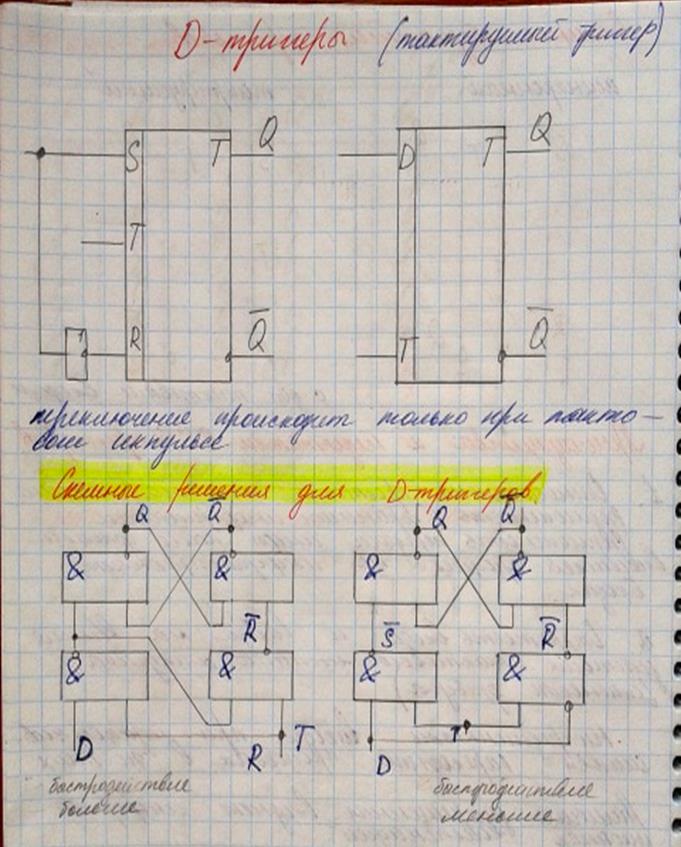 D-тригеры (тактируемый тригер)
S T Q
D T Q
T
R Q̅
T Q̅
переключение происходит только при такто-
вом импульсе
Схемные решения для D-тригеров
Q Q̅ Q Q̅
& & & &
R̅ S̅ R̅
& & & &
D R T D T
быстродействие
большие
быстродействие
меньшие